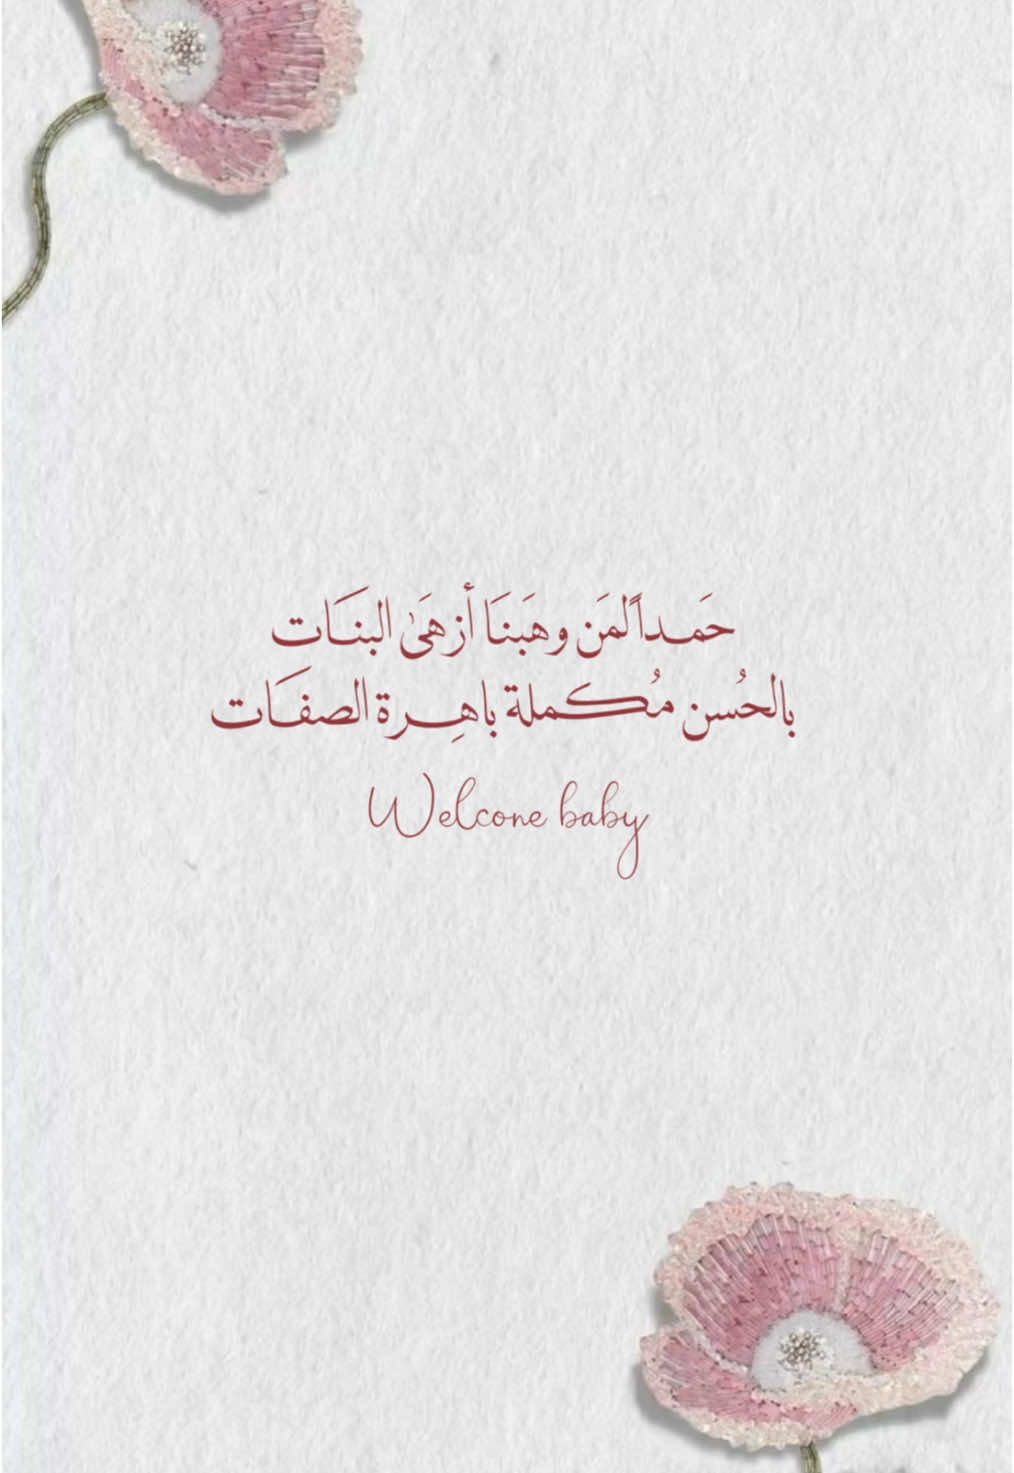 حَمـداً لمَن وهَبنَا أزهَىٰ البنَـات
بالحُسن مُكـملة باهِـرة الصفَـات
Welcone baby